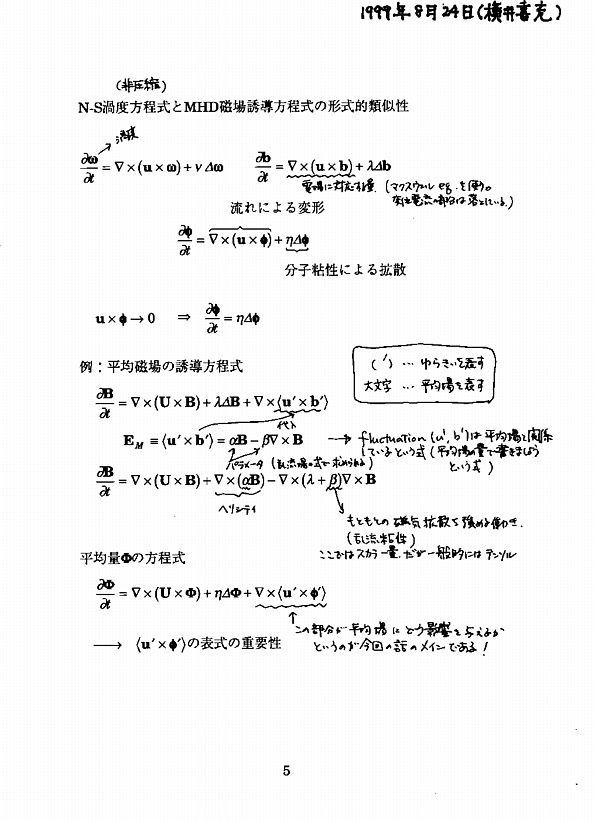 1999年8月24日(横井喜充)
(非圧縮)
N-S渦度方程式とMHD磁場誘導方程式の形式的類似性
渦度
∂ω/∂t = ∇×(u×ω) + ν Δω   ∂b/∂t = ∇×(u×b) + λΔb
電場に対応する量. (マクスウェル eq. を使う。
変位電流の部分は落としている。)
流れによる変形
∂φ/∂t = ∇×(u×φ) + ηΔφ
分子粘性による拡散
u×φ→0 ⇒ ∂φ/∂t = ηΔφ
例：平均磁場の誘導方程式
(′) … ゆらぎを表す
大文字 … 平均場を表す
∂B/∂t = ∇×(U×B) + λΔB + ∇×⟨u′×b′⟩
代入
E_M ≡ ⟨u′×b′⟩ = αB − β∇×B
→ fluctuation (u′, b′)は平均場と関係
しているという式 (平均場の量で書きましょう
という式)
パラメータ (乱流場の式で求められる)
∂B/∂t = ∇×(U×B) + ∇×(αB) − ∇×(λ + β)∇×B
ヘリシティ
もともとの磁気拡散を強める働き.
(乱流粘性)
ここではスカラー量.だが一般的にはテンソル
平均量Φの方程式
∂Φ/∂t = ∇×(U×Φ) + ηΔΦ + ∇×⟨u′×φ′⟩
この部分が平均場にどう影響を与えるか
というのが今回の話のメインである!
⟶ ⟨u′×φ′⟩の表式の重要性
5